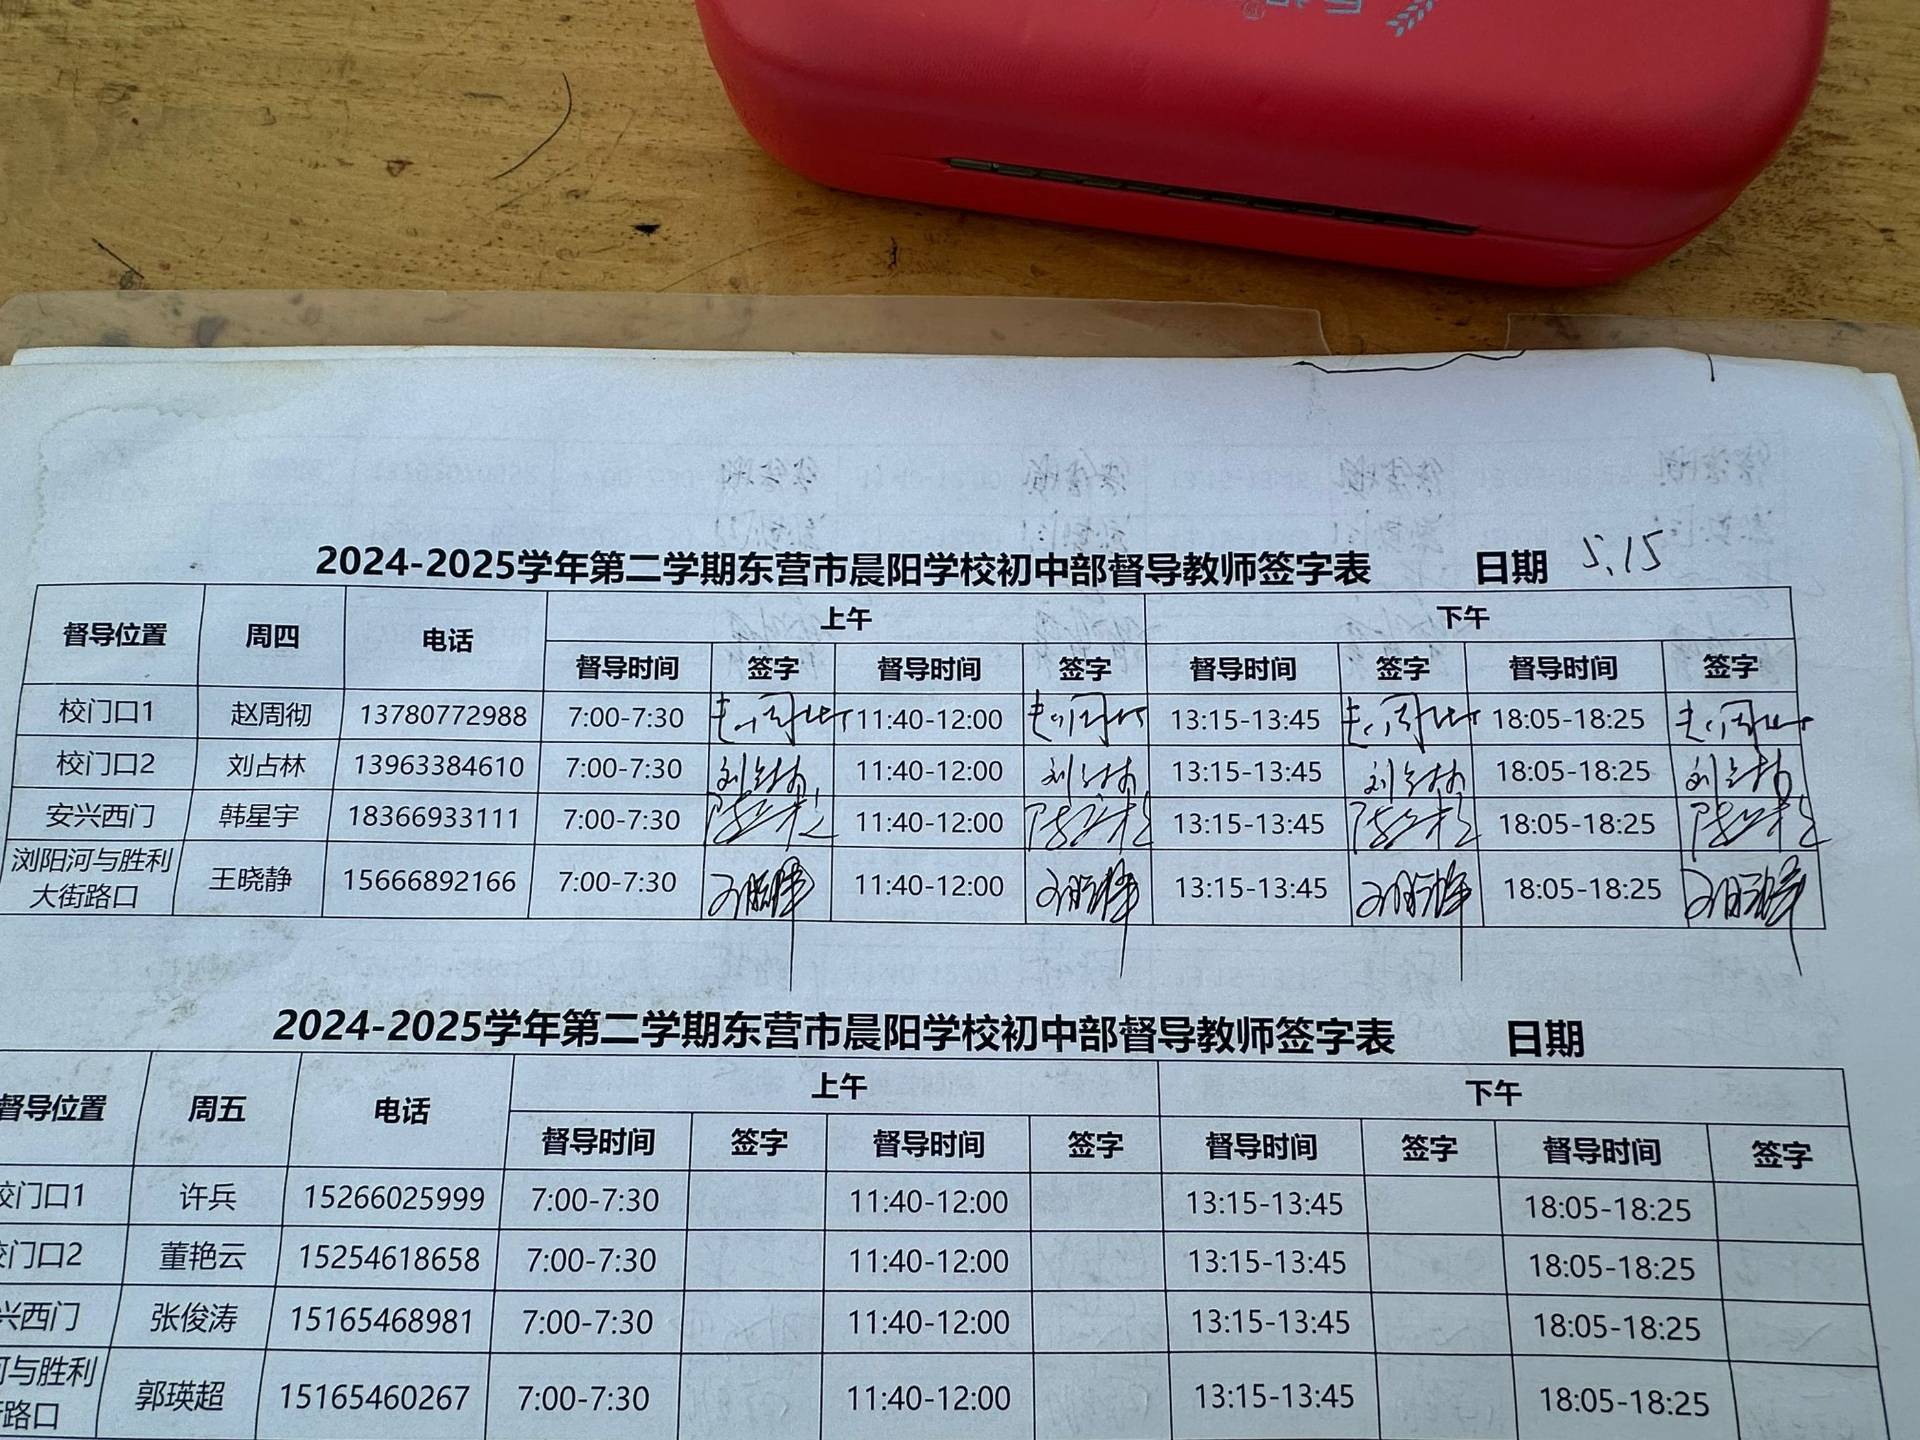 2024-2025学年第二学期东营市晨阳学校初中部督导教师签字表 日期 5.15
督导位置 周四 电话 上午 下午
督导时间 签字 督导时间 签字 督导时间 签字 督导时间 签字
校门口1 赵周彻 13780772988 7:00-7:30 11:40-12:00 13:15-13:45 18:05-18:25
校门口2 刘占林 13963384610 7:00-7:30 刘占林 11:40-12:00 刘占林 13:15-13:45 刘占林 18:05-18:25 刘占林
安兴西门 韩星宇 18366933111 7:00-7:30 11:40-12:00 13:15-13:45 18:05-18:25
浏阳河与胜利
大街路口 王晓静 15666892166 7:00-7:30 11:40-12:00 13:15-13:45 18:05-18:25
2024-2025学年第二学期东营市晨阳学校初中部督导教师签字表 日期
督导位置 周五 电话 上午 下午
督导时间 签字 督导时间 签字 督导时间 签字 督导时间 签字
校门口1 许兵 15266025999 7:00-7:30 11:40-12:00 13:15-13:45 18:05-18:25
门口2 董艳云 15254618658 7:00-7:30 11:40-12:00 13:15-13:45 18:05-18:25
兴西门 张俊涛 15165468981 7:00-7:30 11:40-12:00 13:15-13:45 18:05-18:25
河与胜利
路口 郭瑛超 15165460267 7:00-7:30 11:40-12:00 13:15-13:45 18:05-18:25